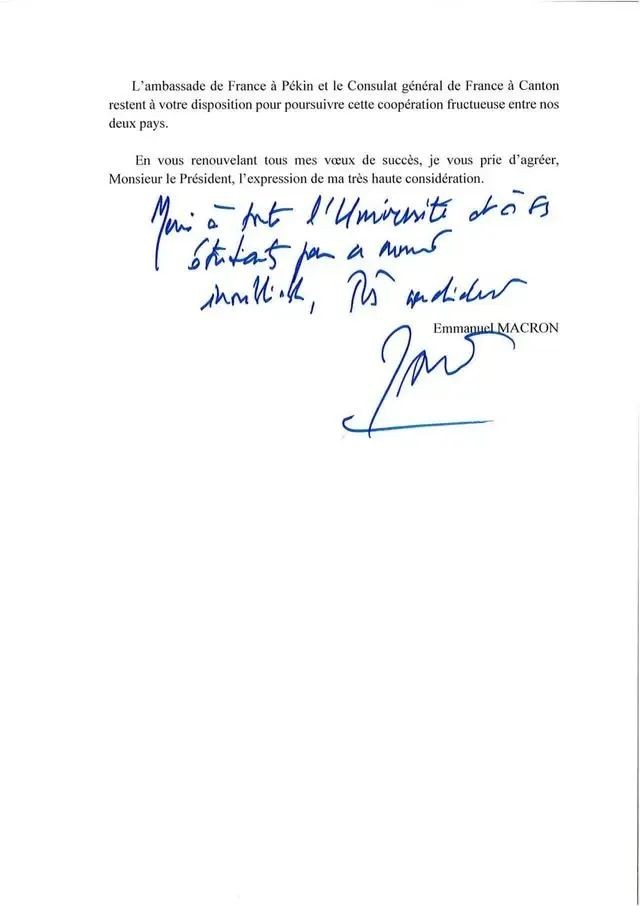 L’ambassade de France à Pékin et le Consulat général de France à Canton
restent à votre disposition pour poursuivre cette coopération fructueuse entre nos
deux pays.
En vous renouvelant tous mes vœux de succès, je vous prie d’agréer,
Monsieur le Président, l’expression de ma très haute considération.
Merci à toute l'Université et à ses
étudiants pour ce moment
inoubliable,
Emmanuel MACRON